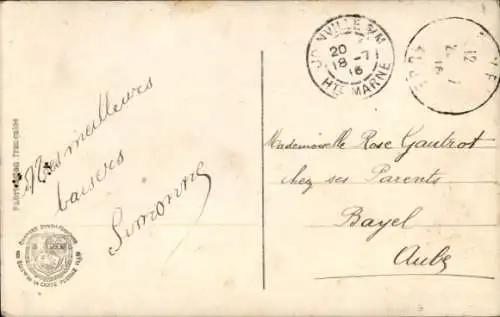 Fabrication française
Mes meilleurs
baisers
Simonne
JOINVILLE
20
18 -7
16
HTE MARNE
12 7
16
Mademoiselle Rose Gautrot
chez ses Parents
Bayel
Aube